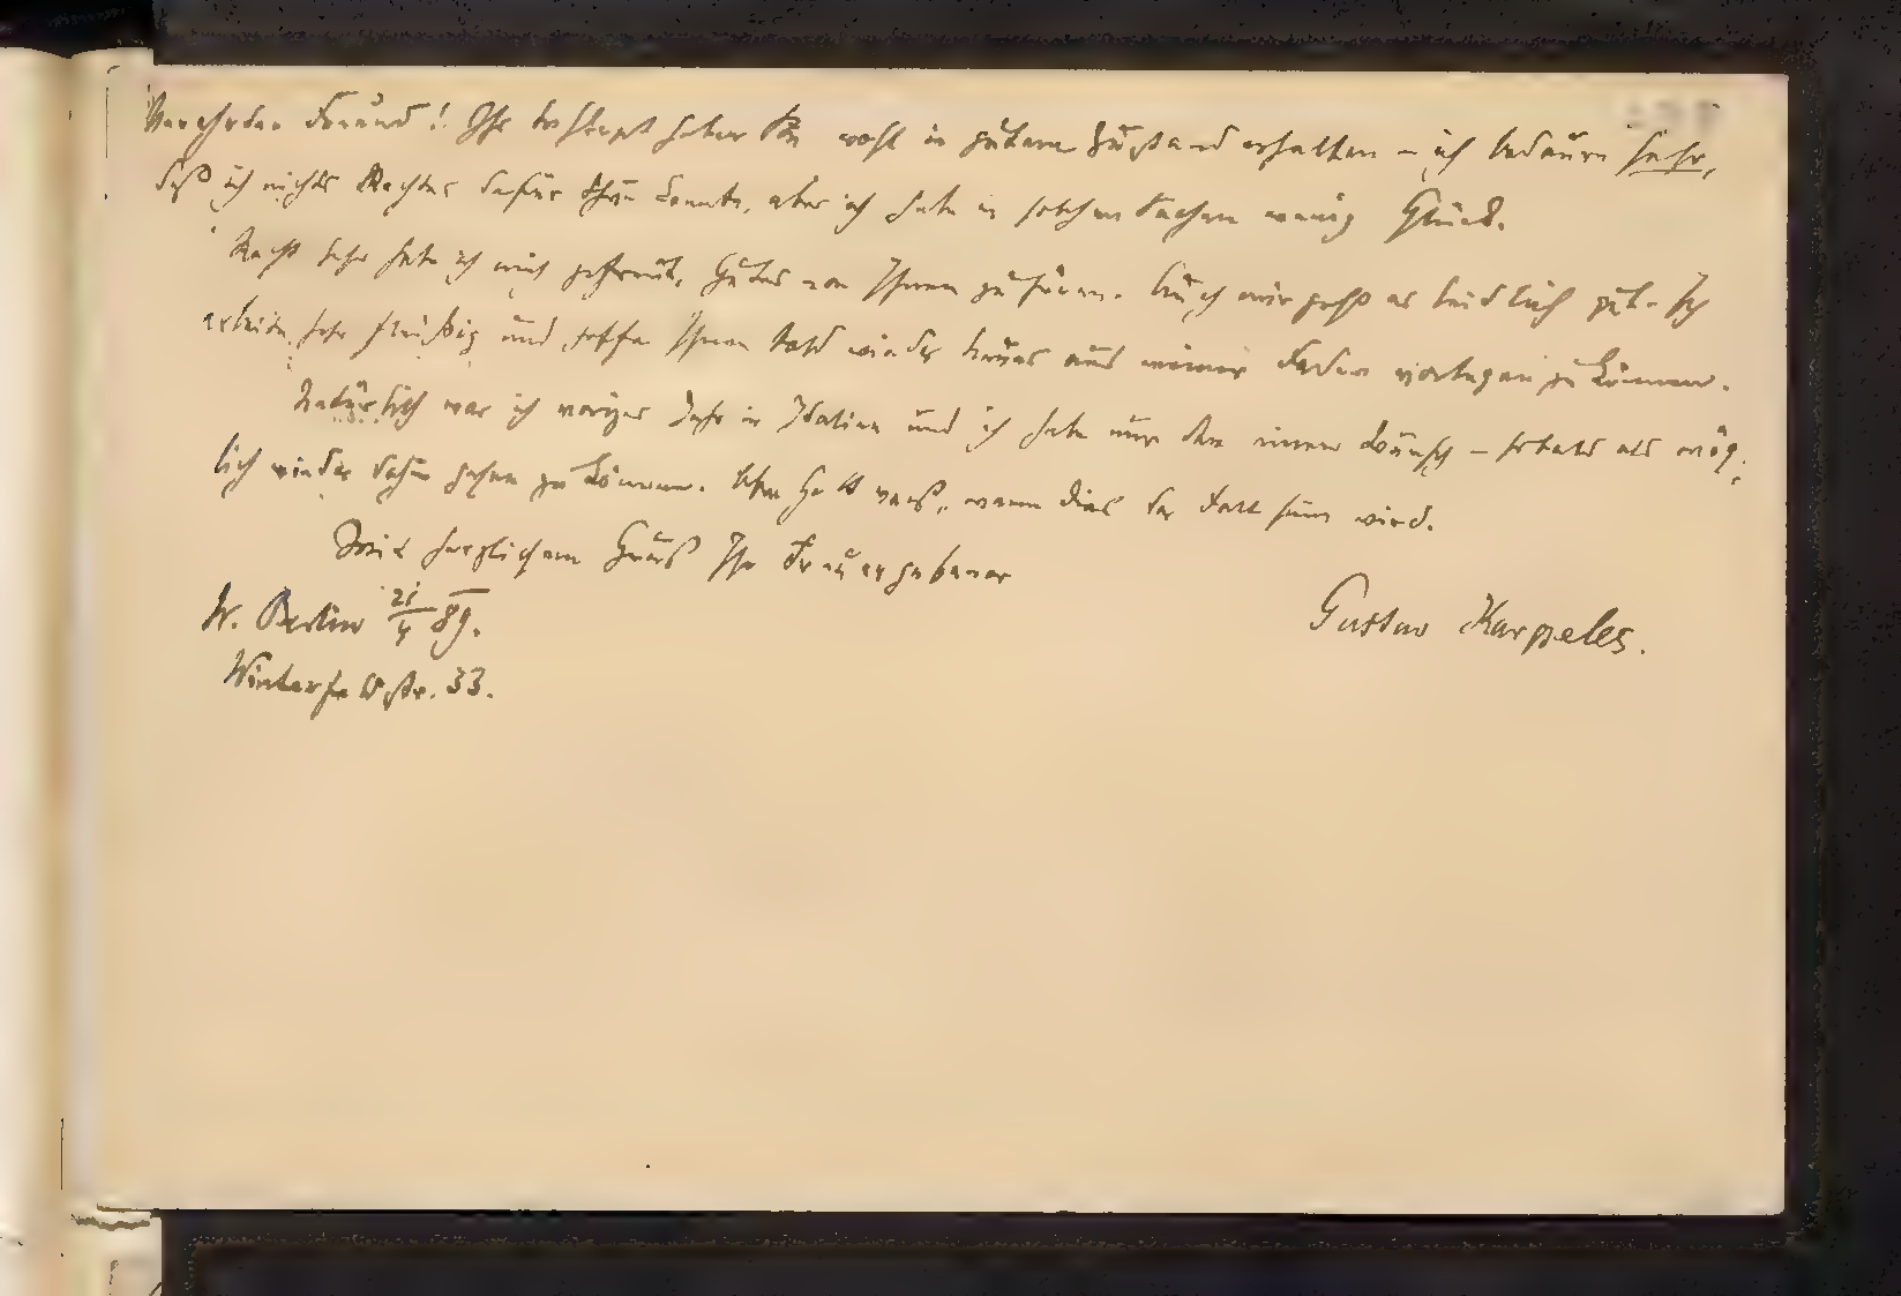 Verehrter Freund! Ihr Manskript haben Sie wohl in gutem Zustand erhalten – ich bedaure sehr,
daß ich nichts Rechtes dafür thun konnte, aber ich habe in solchen Sachen wenig Glück.
Recht sehr habe ich mich gefreut, Gutes von Ihnen zu hören. Auch mir geht es leidlich gut. Ich
arbeite sehr fleißig und hoffe Ihnen bald wieder Neues aus meiner Feder vorlegen zu können.
Natürlich war ich voriges Jahr in Italien und ich habe nur den einen Wunsch – sobald als mög-
lich wieder dahin gehen zu können. Aber Gott weiß, wann dies der Fall sein wird.
Mit herzlichem Gruß Ihr treuergebener
Gustav Karpeles.
W. Berlin 21/4 89.
Winterfeldtstr. 33.